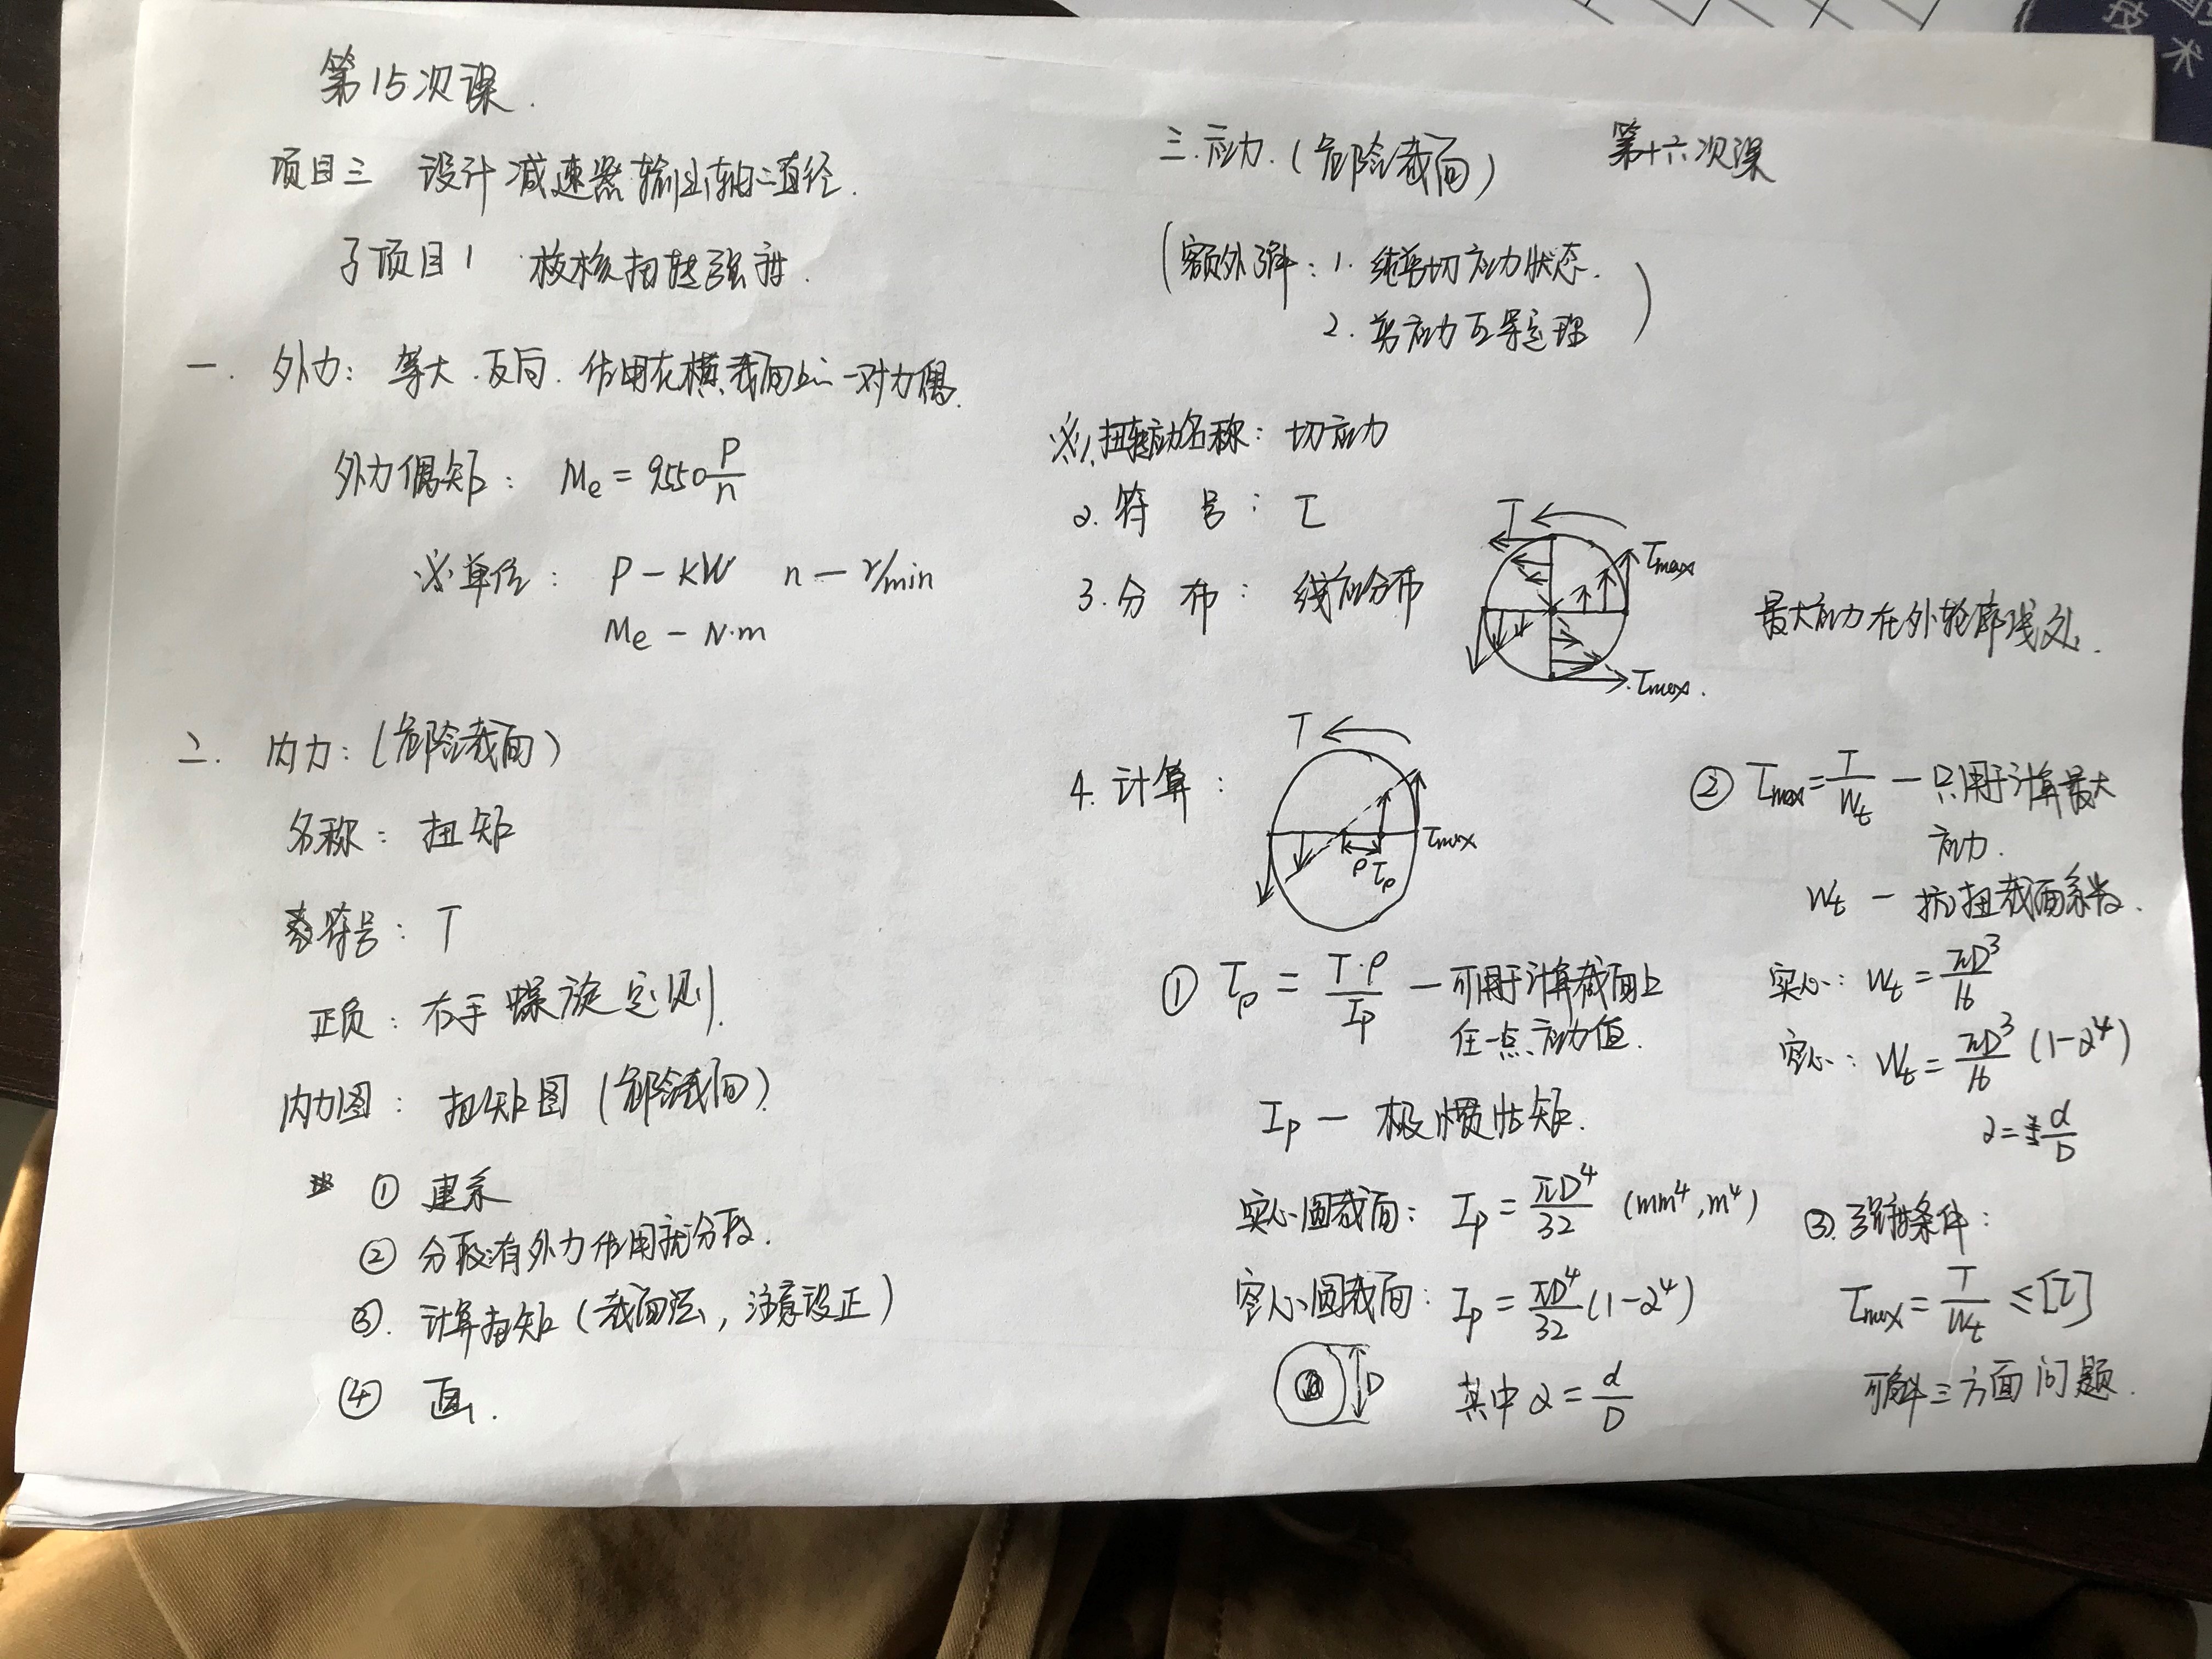 第15次课.
项目三 设计减速器输出轴的直径.
子项目1 校核扭转强度.
一. 外力: 等大.反向.作用在横截面上的一对力偶.
外力偶矩: Me = 9550 P/n
※单位: P — KW n — r/min
Me — N·m
二. 内力: (危险截面)
名称: 扭矩
符号: T
正负: 右手螺旋定则.
内力图: 扭矩图 (危险截面)
※ ① 建系
② 分段:有外力作用就分段.
③. 计算扭矩 (截面法, 注意设正)
④ 画.
三.应力. (危险截面) 第十六次课
(额外了解: 1. 纯剪切应力状态.
2. 剪应力互等定理)
※1.扭转应力名称: 切应力
2. 符号: τ
3. 分布: 线性分布
T
τmax
τmax.
最大应力在外轮廓线处.
4. 计算:
T
τmax
ρ τρ
① τρ = T·ρ/Ip — 可用于计算截面上
任一点应力值.
Ip — 极惯性矩.
实心圆截面: Ip = πD⁴/32 (mm⁴, m⁴)
空心圆截面: Ip = πD⁴/32 (1-α⁴)
D
其中 α = d/D
② τmax = T/Wt — 只用于计算最大
应力.
Wt — 抗扭截面系数.
实心: Wt = πD³/16
空心: Wt = πD³/16 (1-α⁴)
α = d/D
③. 强度条件:
τmax = T/Wt ≤ [τ]
可解三方面问题.
技
术